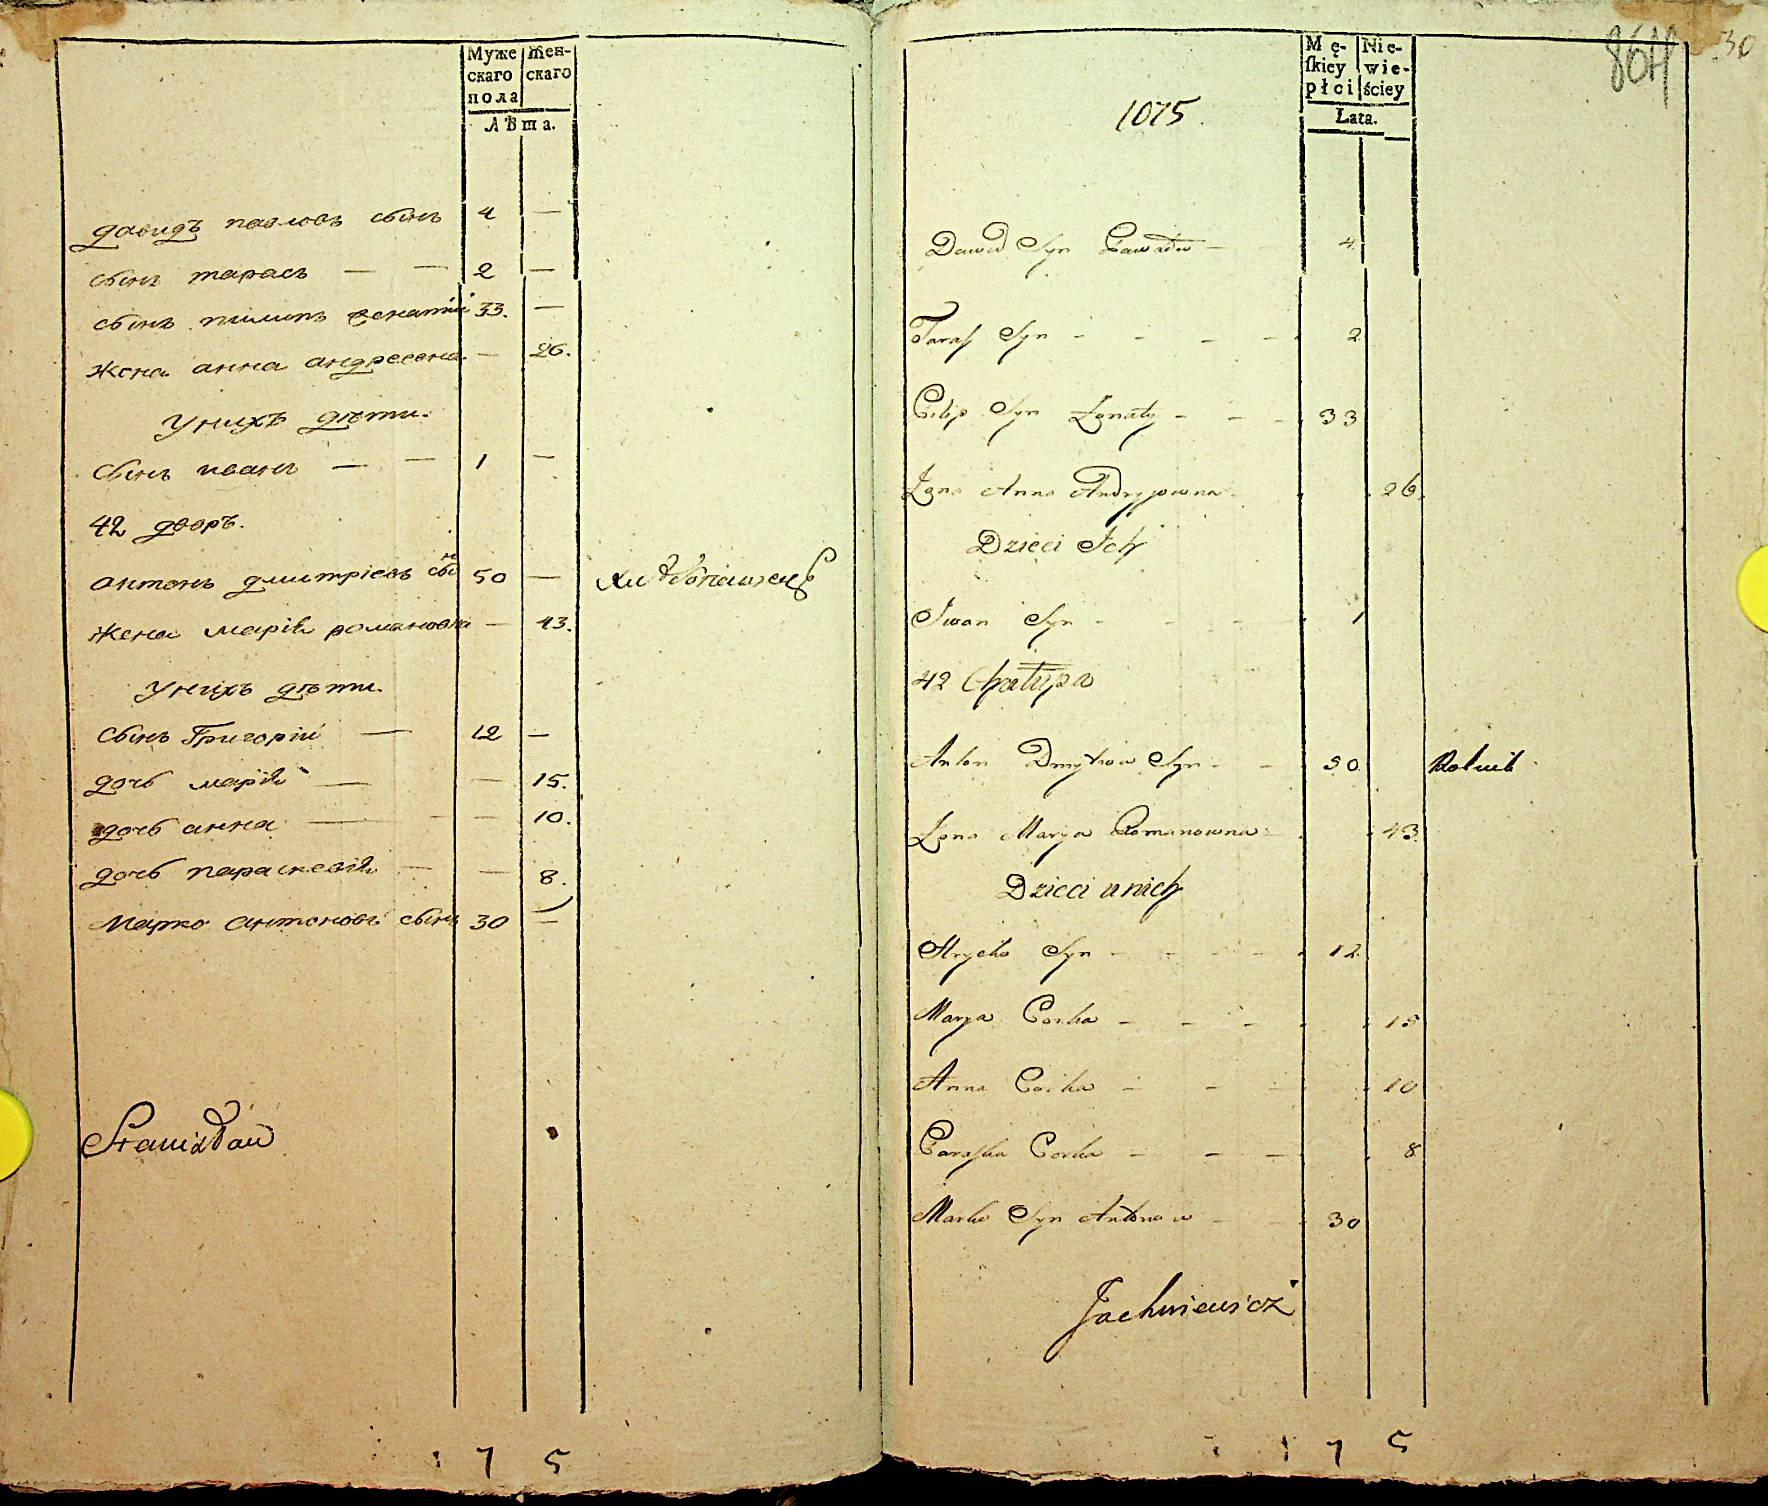 Муже Жен-
скаго скаго
пола
Лѣта.
давидъ павловъ сынъ 4 —
сынъ тарасъ — — 2 —
сынъ пилипъ 33. —
жена анна андреевна — 26.
У нихъ дѣти.
сынъ иванъ — — 1 —
42 дворъ.
антонъ дмитріевъ сынъ 50 —
жена марія романовна — 43.
У нихъ дѣти.
сынъ Григорій — 12 —
дочь марія — — 15.
дочь анна — — — 10.
дочь параскевія — — 8.
Марко антоновъ сынъ 30 —
1 7 5
864 30
1075.
Mę- Nie-
ſkiey wie-
płci ściey
Lata.
Dawid Syn Pawałów — 4.
Taraſ Syn - - - - 2
Filip Syn Ignaty - - - 33
Żona Anna Andryjowna 26.
Dzieci Ich
Iwan Syn - - - - 1
42 Chałupa
Anton Dmytrow Syn - - 50 Rolnik
Żona Marya Romanowna - 43.
Dzieci u nich
Hryćko Syn - - - - 12.
Marya Corka - - - 15
Anna Corka - - - 10
Paraſka Corka - - - 8
Marko Syn Antonow - - 30
Jachniewicz
1 7 5